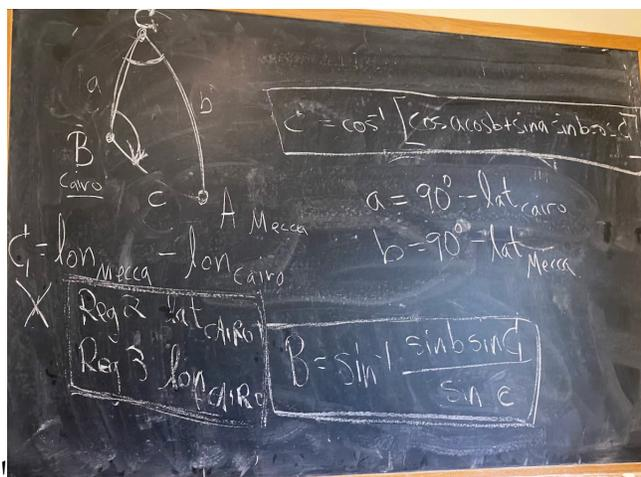 C
a
b
B
Cairo
c
A Mecca
c = cos⁻¹ [cos a cos b + sin a sin b cos C]
a = 90° - lat Cairo
b = 90° - lat Mecca
C = lon Mecca - lon Cairo
Reg 2 lat CAIRO
Reg 3 lon CAIRO
B = sin⁻¹ sin b sin C / sin c